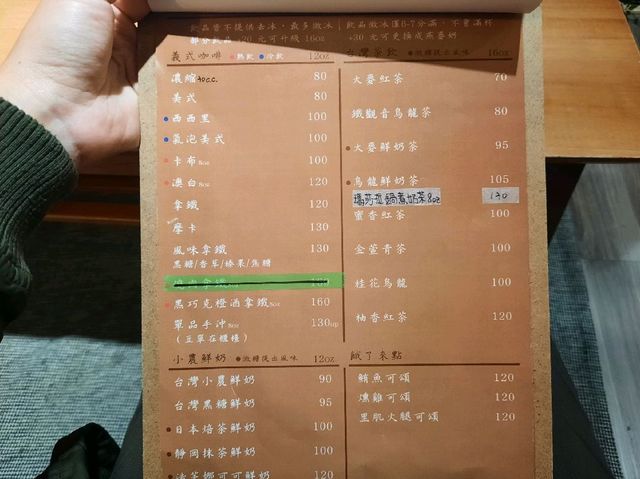 飲品皆不提供去冰，最多微冰
部分飲品+20 元可升級 16oz
飲品微冰僅6-7分滿，不會滿杯
+30 元可更換成燕麥奶
義式咖啡 熱飲 冷飲 12oz
濃縮 40c.c. 80
美式 80
西西里 100
氣泡美式 100
卡布 8oz 100
澳白 8oz 120
拿鐵 120
摩卡 130
風味拿鐵 130
黑糖/香草/榛果/焦糖
黑巧克橙酒拿鐵 8oz 160
單品手沖 8oz 130up
(豆單在櫃檯)
小農鮮奶 微糖提出風味 12oz
台灣小農鮮奶 90
台灣黑糖鮮奶 95
日本焙茶鮮奶 100
靜岡抹茶鮮奶 100
可可鮮奶 110
台灣茶飲 微糖提出風味 16oz
大麥紅茶 70
鐵觀音烏龍茶 80
大麥鮮奶茶 95
烏龍鮮奶茶 105
瑪莎拉鍋煮奶茶 8oz 130
蜜香紅茶 100
金萱青茶 100
桂花烏龍 100
柚香紅茶 120
餓了來點
鮪魚可頌 120
燻雞可頌 120
里肌火腿可頌 120